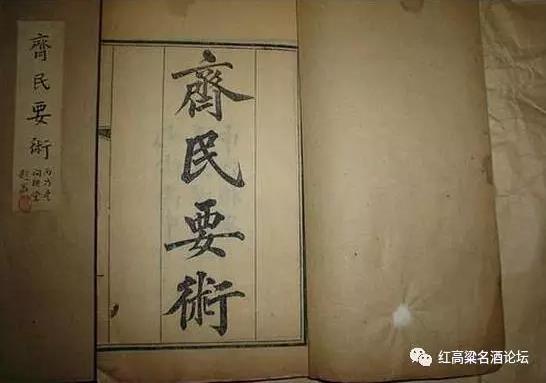 齊民要術
齊民要術
红高粱名酒论坛